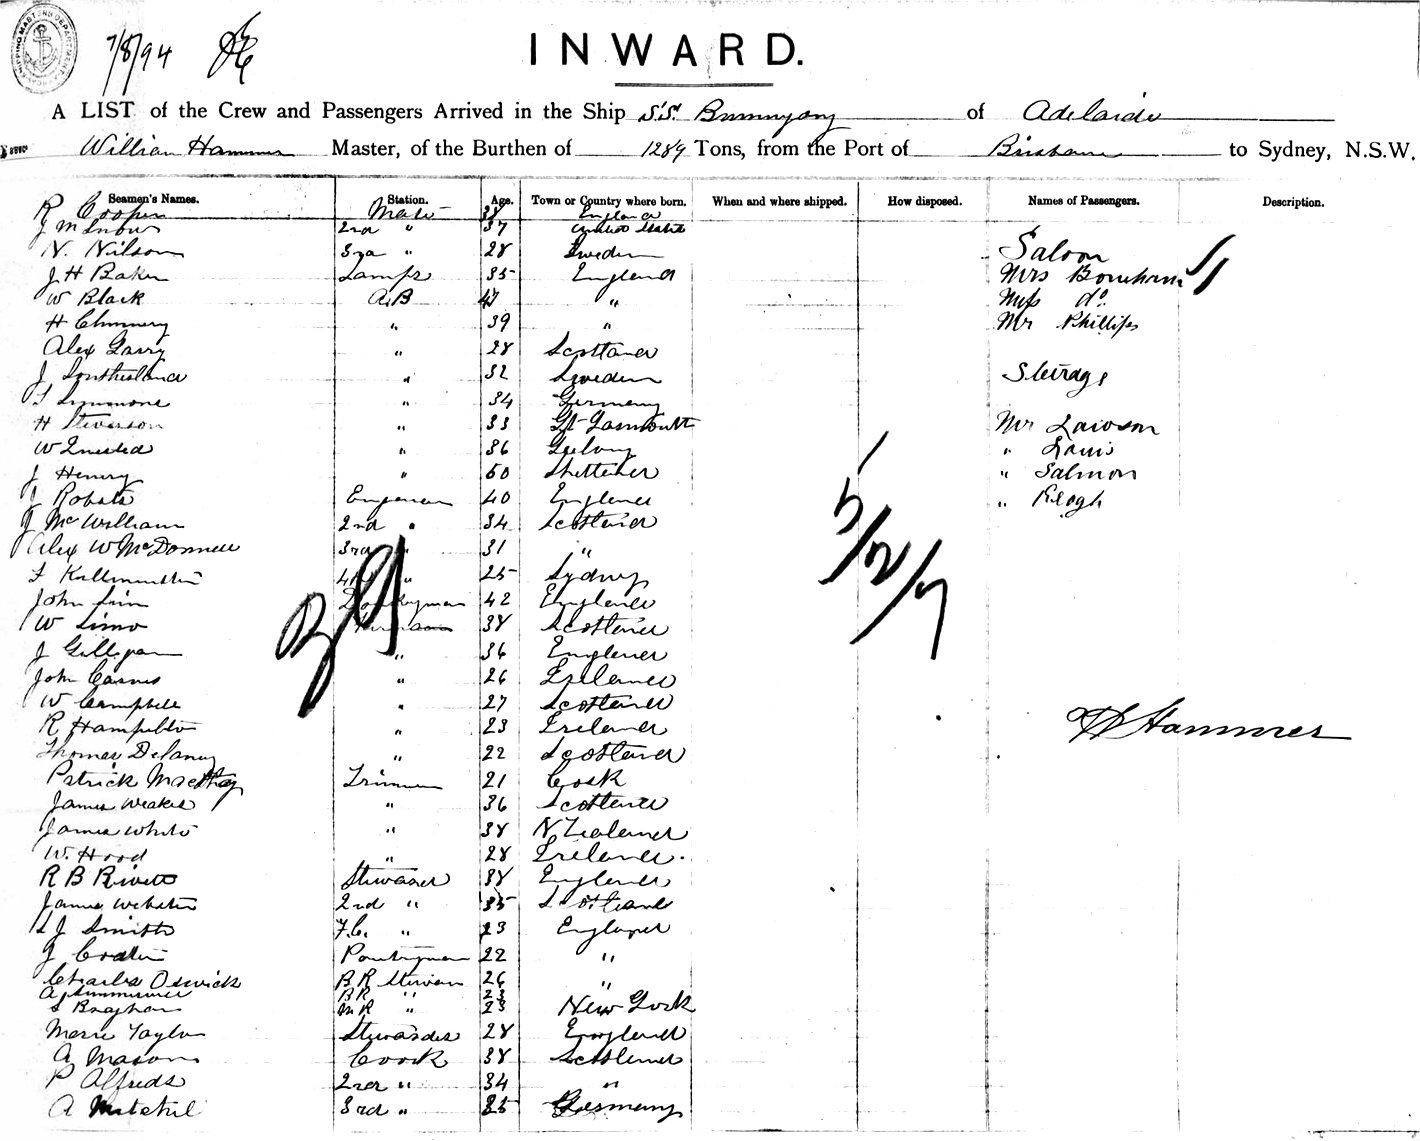 SHIPPING MASTERS DEPARTMENT
7/8/94
INWARD.
A LIST of the Crew and Passengers Arrived in the Ship S.S. Buninyong of Adelaide
William Hammer Master, of the Burthen of 1289 Tons, from the Port of Brisbane to Sydney, N.S.W.
Seamen's Names. Station. Age. Town or Country where born. When and where shipped. How disposed. Names of Passengers. Description.
R Cooper Mate 38 England
J M 2nd " 37 United States
N. Nilson 3rd " 28 Sweden Saloon
J H Baker Lamps 35 England Mrs Boreham
W Black A.B 47 " Miss do
H Chinnery " 39 " Mr Phillips
Alex Garry " 28 Scotland
J Southerland " 32 Sweden Steirage
Simmons " 34 Germany
H Steverson " 33 Gt Yarmouth Mr Lawson
W " 36 Geelong " Lewis
J Henry " 50 " Salmon
J Roberts Engineer 40 England " Keogh
J McWilliam 2nd " 34 Scotland
Alex W McDonnell 3rd " 31 "
4th " 25 Sydney
John Sim Donkeyman 42 England
W Sims Fireman 38 Scotland
J Gilligan " 36 England
John Carnes " 26 Ireland
W Campbell " 27 Scotland
R Hampilton " 23 Ireland W Hammer
Thomas Delaney " 22 Scotland
Patrick Trimmer 21 Cork
James Weakes " 36 Scotland
James White " 38 N Zealand
W. Hood " 28 Ireland.
R B Rivett Steward 38 England
James Webster 2nd " 35 Scotland
J Smith F.C. " 23 England
J Pantryman 22 "
Charles Oswick B R Steward 26 "
A BR " 23
S Bragham M R " 23 New York
Marie Taylor Stewardes 28 England
A Mason Coock 38 Scotland
P Alfreds 2nd " 34 "
A Mitchel 3rd " 25 Germany
5/12/7